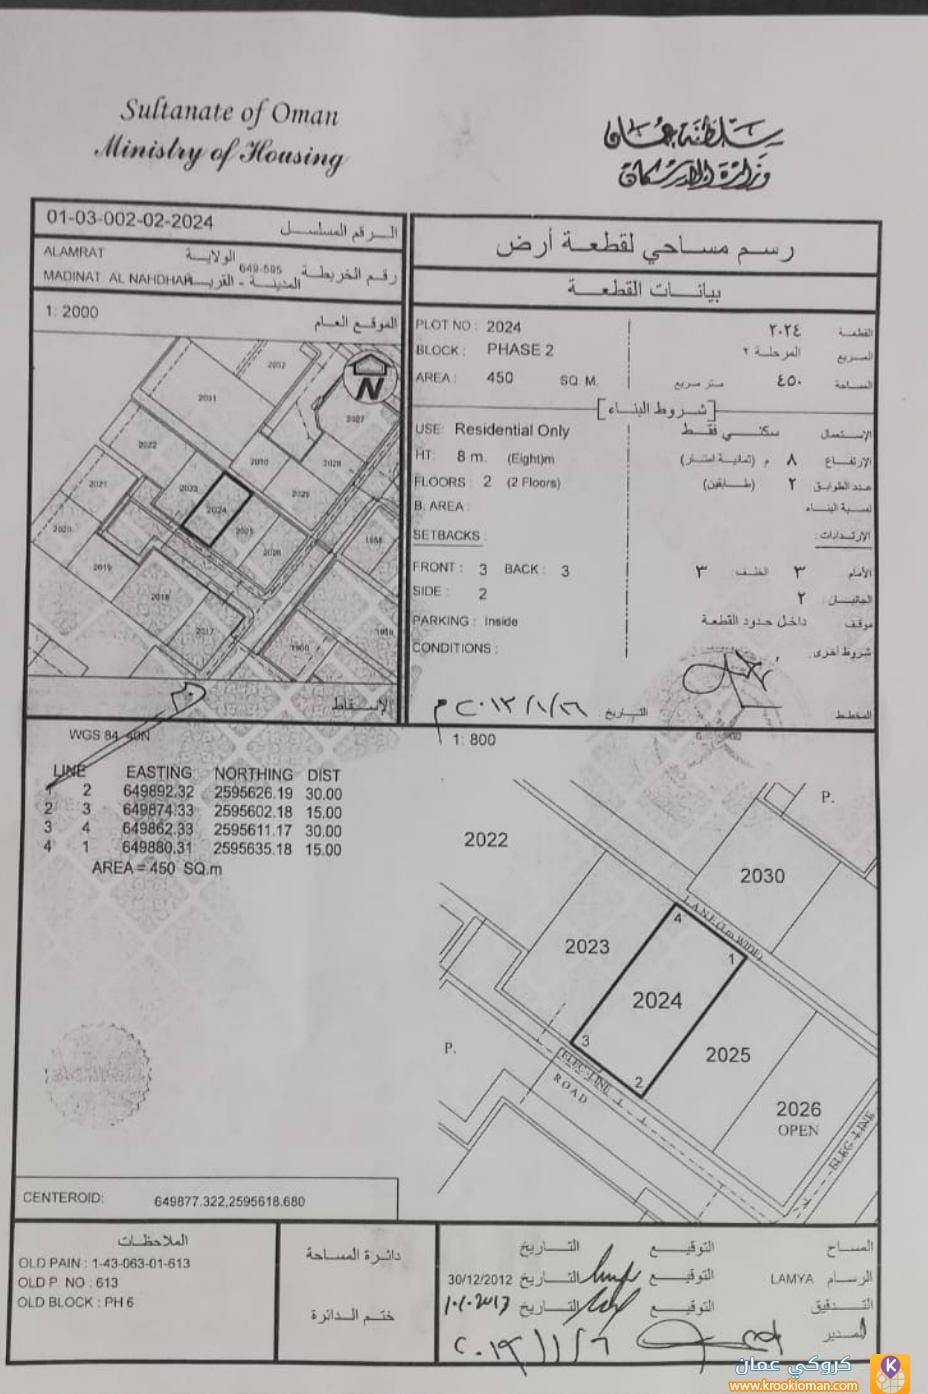 Sultanate of Oman
Ministry of Housing
سلطنة عمان
وزارة الإسكان
01-03-002-02-2024 الرقم المسلسل
ALAMRAT الولاية
MADINAT AL NAHDHAH المدينة - القرية
649-595 رقم الخريطة
1: 2000 الموقع العام
2032
2031
2027
2022
2030
2028
2021
2023
2029
2024
2025
2020
2026
1958
2019
2018
2017
1960
1959
N
الإسقاط
WGS 84 40N
رسم مساحي لقطعة أرض
بيانات القطعة
PLOT NO : 2024 القطعة ٢٠٢٤
BLOCK : PHASE 2 المربع المرحلة ٢
AREA : 450 SQ. M. المساحة ٤٥٠ متر مربع
[شروط البناء]
USE: Residential Only الإستعمال سكني فقط
HT: 8 m. (Eight)m الارتفاع ٨ م (ثمانية امتار)
FLOORS : 2 (2 Floors) عدد الطوابق ٢ (طابقين)
B. AREA : نسبة البناء
SETBACKS : الارتدادات:
FRONT : 3 BACK : 3 الأمام ٣ الخلف: ٣
SIDE : 2 الجانبان: ٢
PARKING : Inside موقف داخل حدود القطعة
CONDITIONS : شروط أخرى:
المخطط
التاريخ ٢٠١٣/١/٢٦ م
1: 800
LINE EASTING NORTHING DIST
1 2 649892.32 2595626.19 30.00
2 3 649874.33 2595602.18 15.00
3 4 649862.33 2595611.17 30.00
4 1 649880.31 2595635.18 15.00
AREA = 450 SQ.m
P.
2022
2030
LANE(3m WIDE)
4
1
2023
2024
3
2
P.
2025
ELEC-LINE
ROAD
2026
OPEN
ELEC-LINE
CENTEROID: 649877.322,2595618.680
الملاحظات
OLD PAIN : 1-43-063-01-613
OLD P. NO : 613
OLD BLOCK : PH 6
دائرة المساحة
ختم الدائرة
المساح التوقيع التاريخ
الرسام LAMYA التوقيع التاريخ 30/12/2012
التدقيق التوقيع التاريخ
المدير
كروكي عمان
www.krookioman.com
K